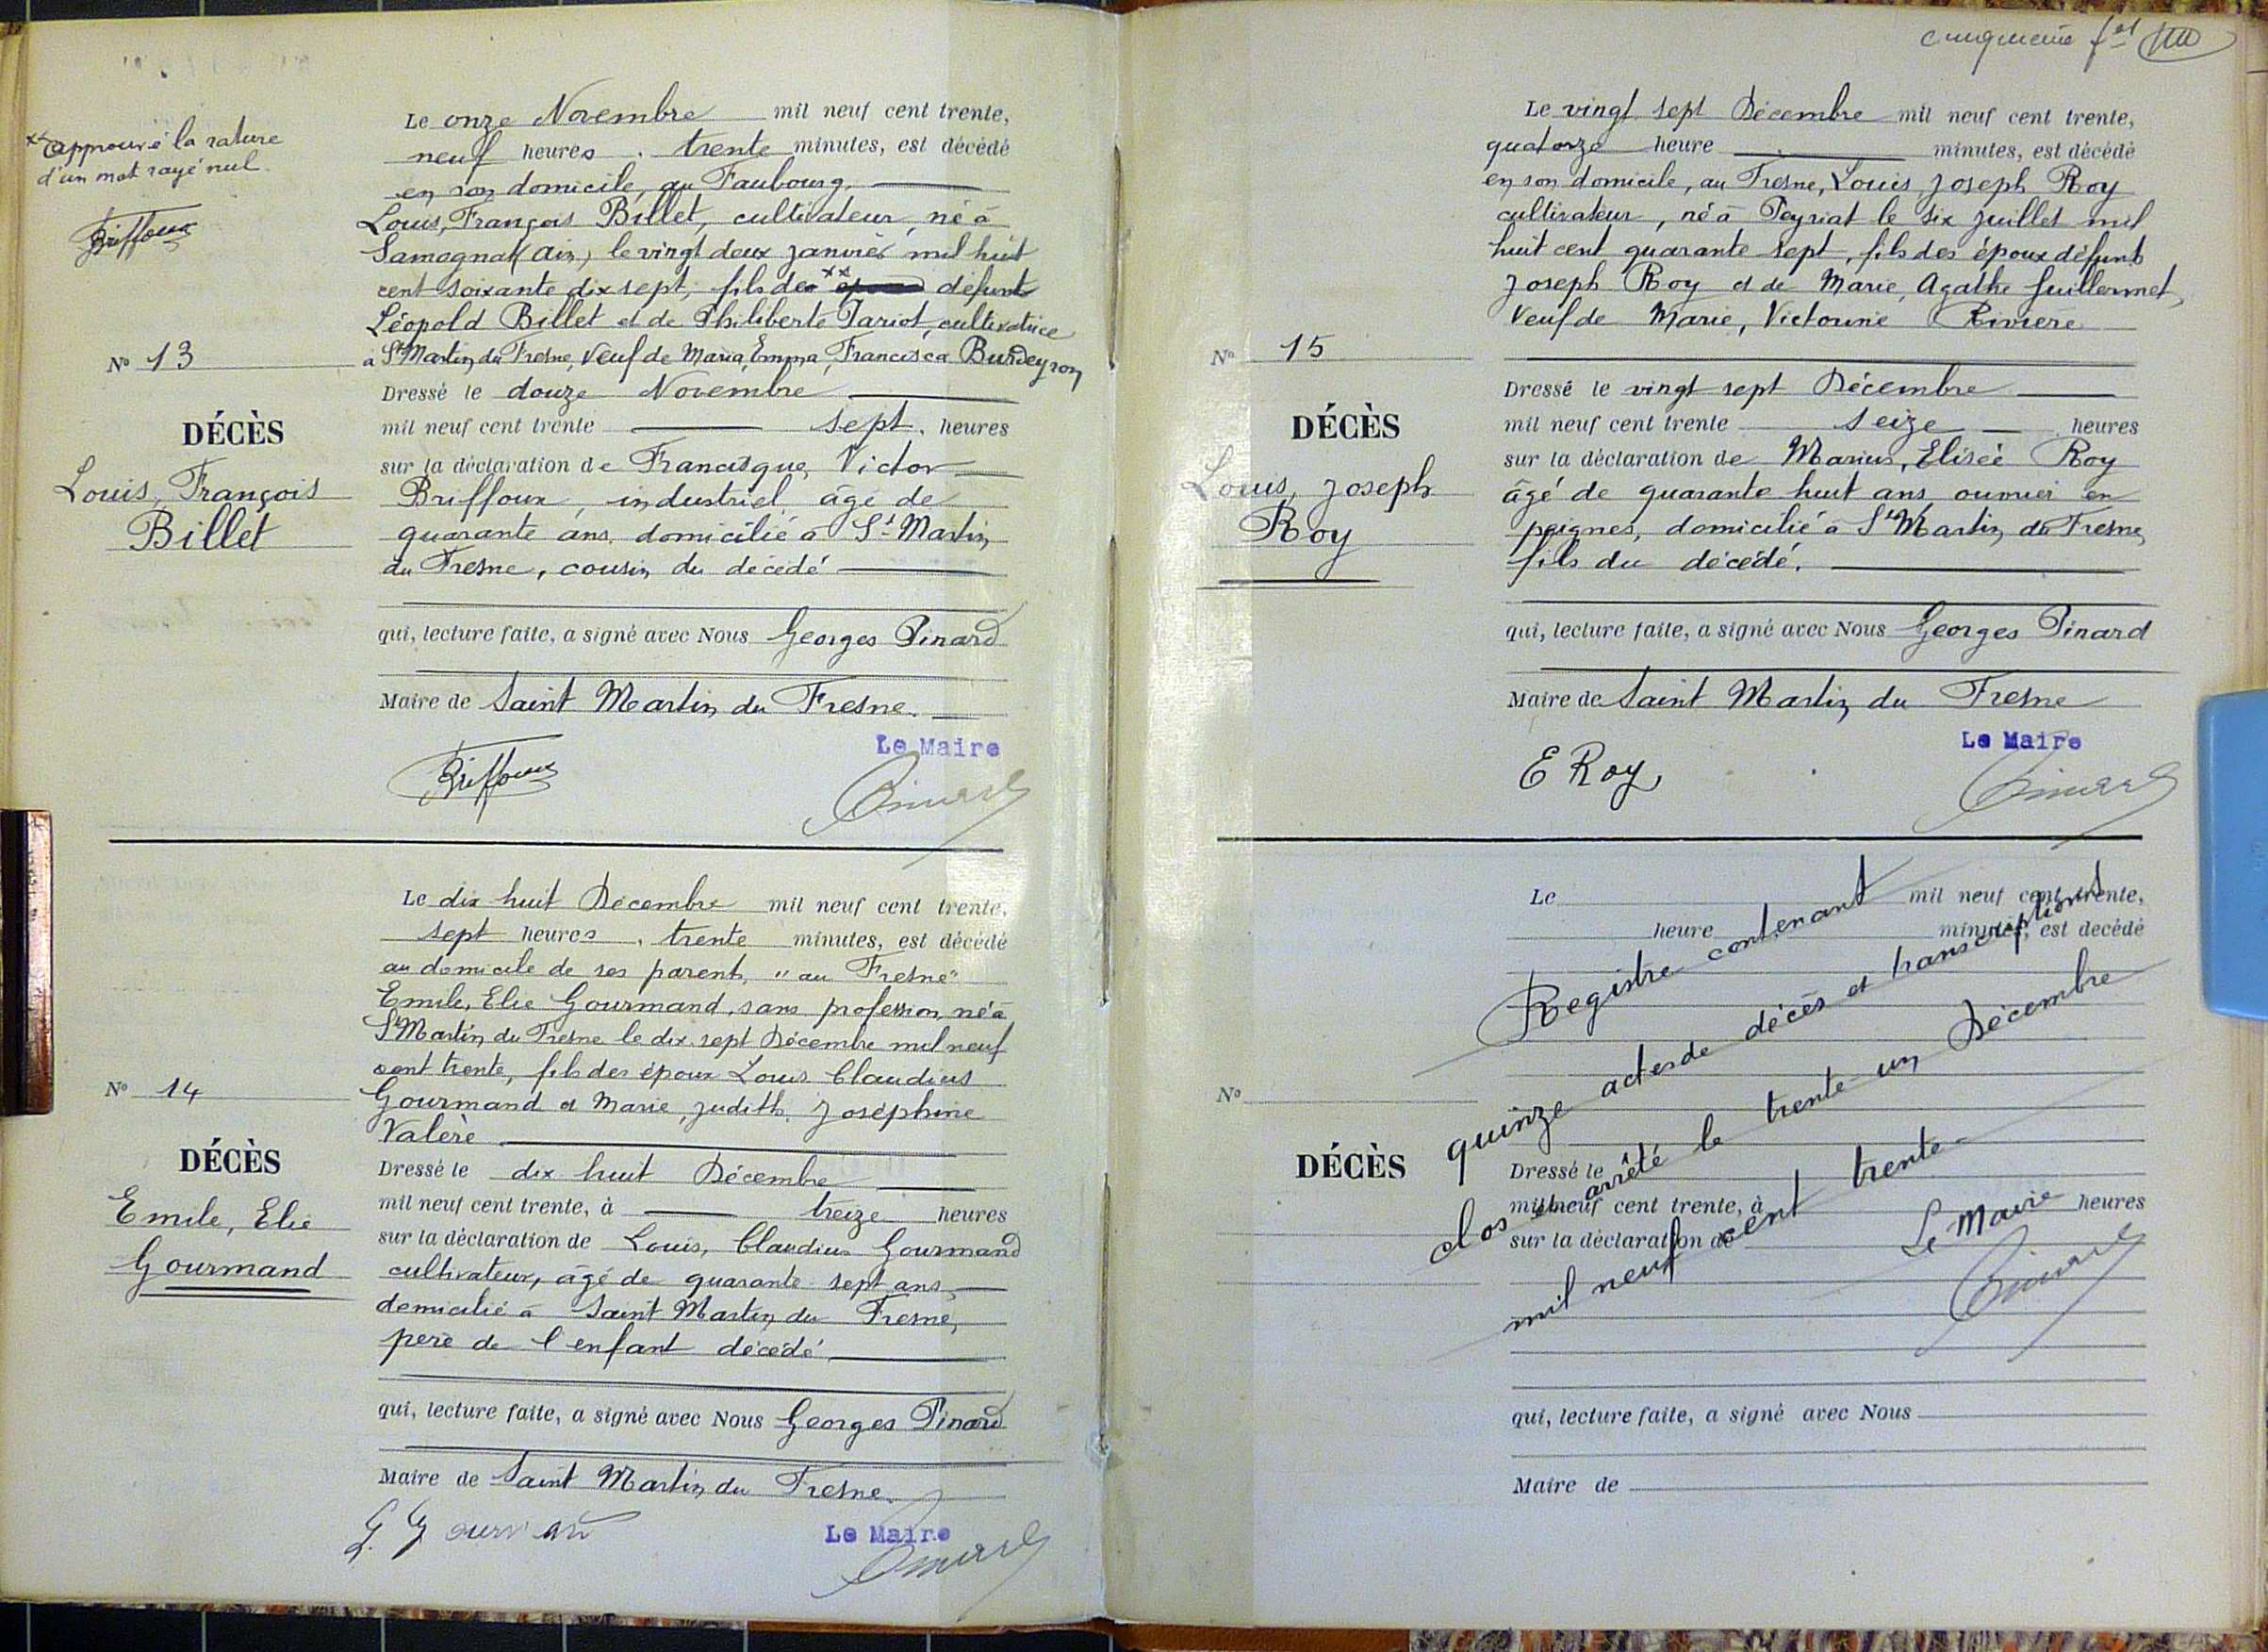 xx approuvé la rature
d'un mot rayé nul.
Briffoux
Le onze Novembre mil neuf cent trente,
neuf heures, trente minutes, est décédé
en son domicile, au Faubourg,
Louis, François Billet, cultivateur, né à
Samognat (Ain), le vingt deux janvier mil huit
cent soixante dix sept, fils de xx défunt
Léopold Billet et de Philiberte Pariot, cultivatrice
à St Martin du Fresne, Veuf de Maria, Emma, Francisca Burdeyron
No 13
DÉCÈS
Louis, François
Billet
Dressé le douze Novembre
mil neuf cent trente sept. heures
sur la déclaration de Francisque, Victor
Briffoux, industriel, âgé de
quarante ans, domicilié à St Martin
du Fresne, cousin du décédé
qui, lecture faite, a signé avec Nous Georges Pinard
Maire de Saint Martin du Fresne.
Le Maire
Briffoux
Pinard
Le dix huit Décembre mil neuf cent trente,
sept heures, trente minutes, est décédé
au domicile de ses parents, "au Fresne"
Emile, Elie Gourmand, sans profession, né à
St Martin du Fresne le dix sept Décembre mil neuf
cent trente, fils des époux Louis Claudius
Gourmand et Marie, Judith, Joséphine
Valère
No 14
DÉCÈS
Emile, Elie
Gourmand
Dressé le dix huit Décembre
mil neuf cent trente, à treize heures
sur la déclaration de Louis, Claudius Gourmand
cultivateur, âgé de quarante sept ans,
domicilié à Saint Martin du Fresne,
père de l'enfant décédé,
qui, lecture faite, a signé avec Nous Georges Pinard
Maire de Saint Martin du Fresne.
Le Maire
Pinard
cinquième fet
Le vingt sept Décembre mil neuf cent trente,
quatorze heure minutes, est décédé
en son domicile, au Fresne, Louis, Joseph Roy
cultivateur, né à Peyriat le six juillet mil
huit cent quarante sept, fils des époux défunts
Joseph Roy et de Marie, Agathe Guillermet,
Veuf de Marie, Victorine Rivière
No 15
DÉCÈS
Louis, Joseph
Roy
Dressé le vingt sept Décembre
mil neuf cent trente seize heures
sur la déclaration de Marius, Elisée Roy
âgé de quarante huit ans, ouvrier en
peignes, domicilié à St Martin du Fresne,
fils du décédé.
qui, lecture faite, a signé avec Nous Georges Pinard
Maire de Saint Martin du Fresne
Le Maire
E Roy
Pinard
Le mil neuf cent trente,
heure minutes, est decédé
No
DÉCÈS
Dressé le
mil neuf cent trente, à heures
sur la déclaration de
qui, lecture faite, a signé avec Nous
Maire de
Registre contenant
quinze actes de décès et transcriptions
clos et arrêté le trente-un Décembre
mil neuf cent trente
Le Maire
Pinard